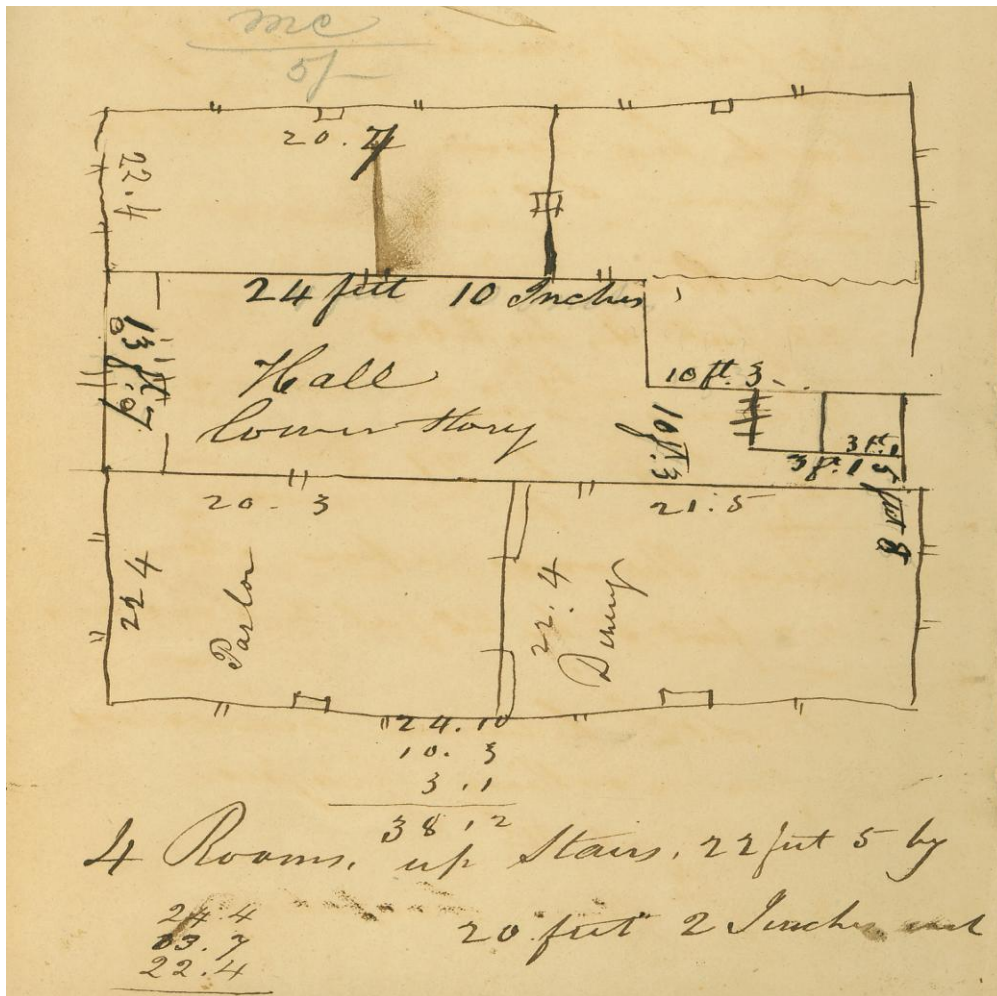 mc
5/-
20.7
22.4
24 feet 10 Inches
13 ft 9
Hall
Lower Story
10 ft. 3
10 ft. 3
3 ft. 1
3 ft. 1
5 feet 8
20 - 3
21.5
22 4
Parlor
22.4
24.10
10. 3
3.1
38.12
4 Rooms, up Stairs, 22 feet 5 by
20 feet 2 Inches
24.4
22.4